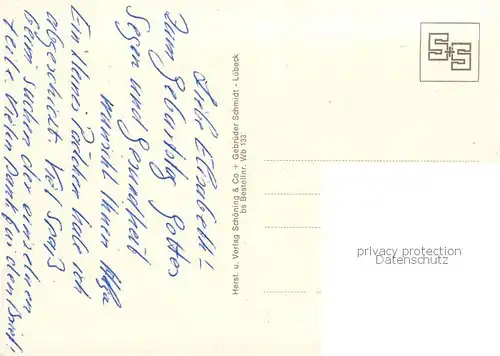 Liebe Elisabeth!
Zum Geburtstag Gottes
Segen und Gesundheit
wünscht Ihnen
Ein kleines Päckchen habe ich
abgeschickt. Viel Spaß
beim suchen der einzelnen
Teile. Vielen Dank für den Brief!
Herst. u. Verlag Schöning & Co + Gebrüder Schmidt - Lübeck
bs Bestellnr. Wb 133
S+S
privacy protection
Datenschutz